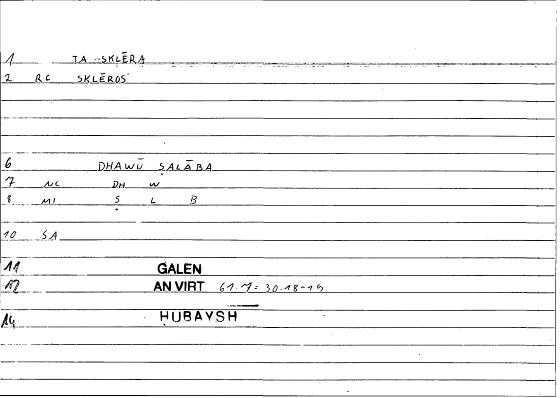 1 TA SKLĒRA
2 RC SKLĒROS
6 DHAWŪ ṢALĀBA
7 NC DH W
8 MI Ṣ L B
10 SA
11 GALEN
12 AN VIRT 61.7 = 30.18-19
14 ḤUBAYSH